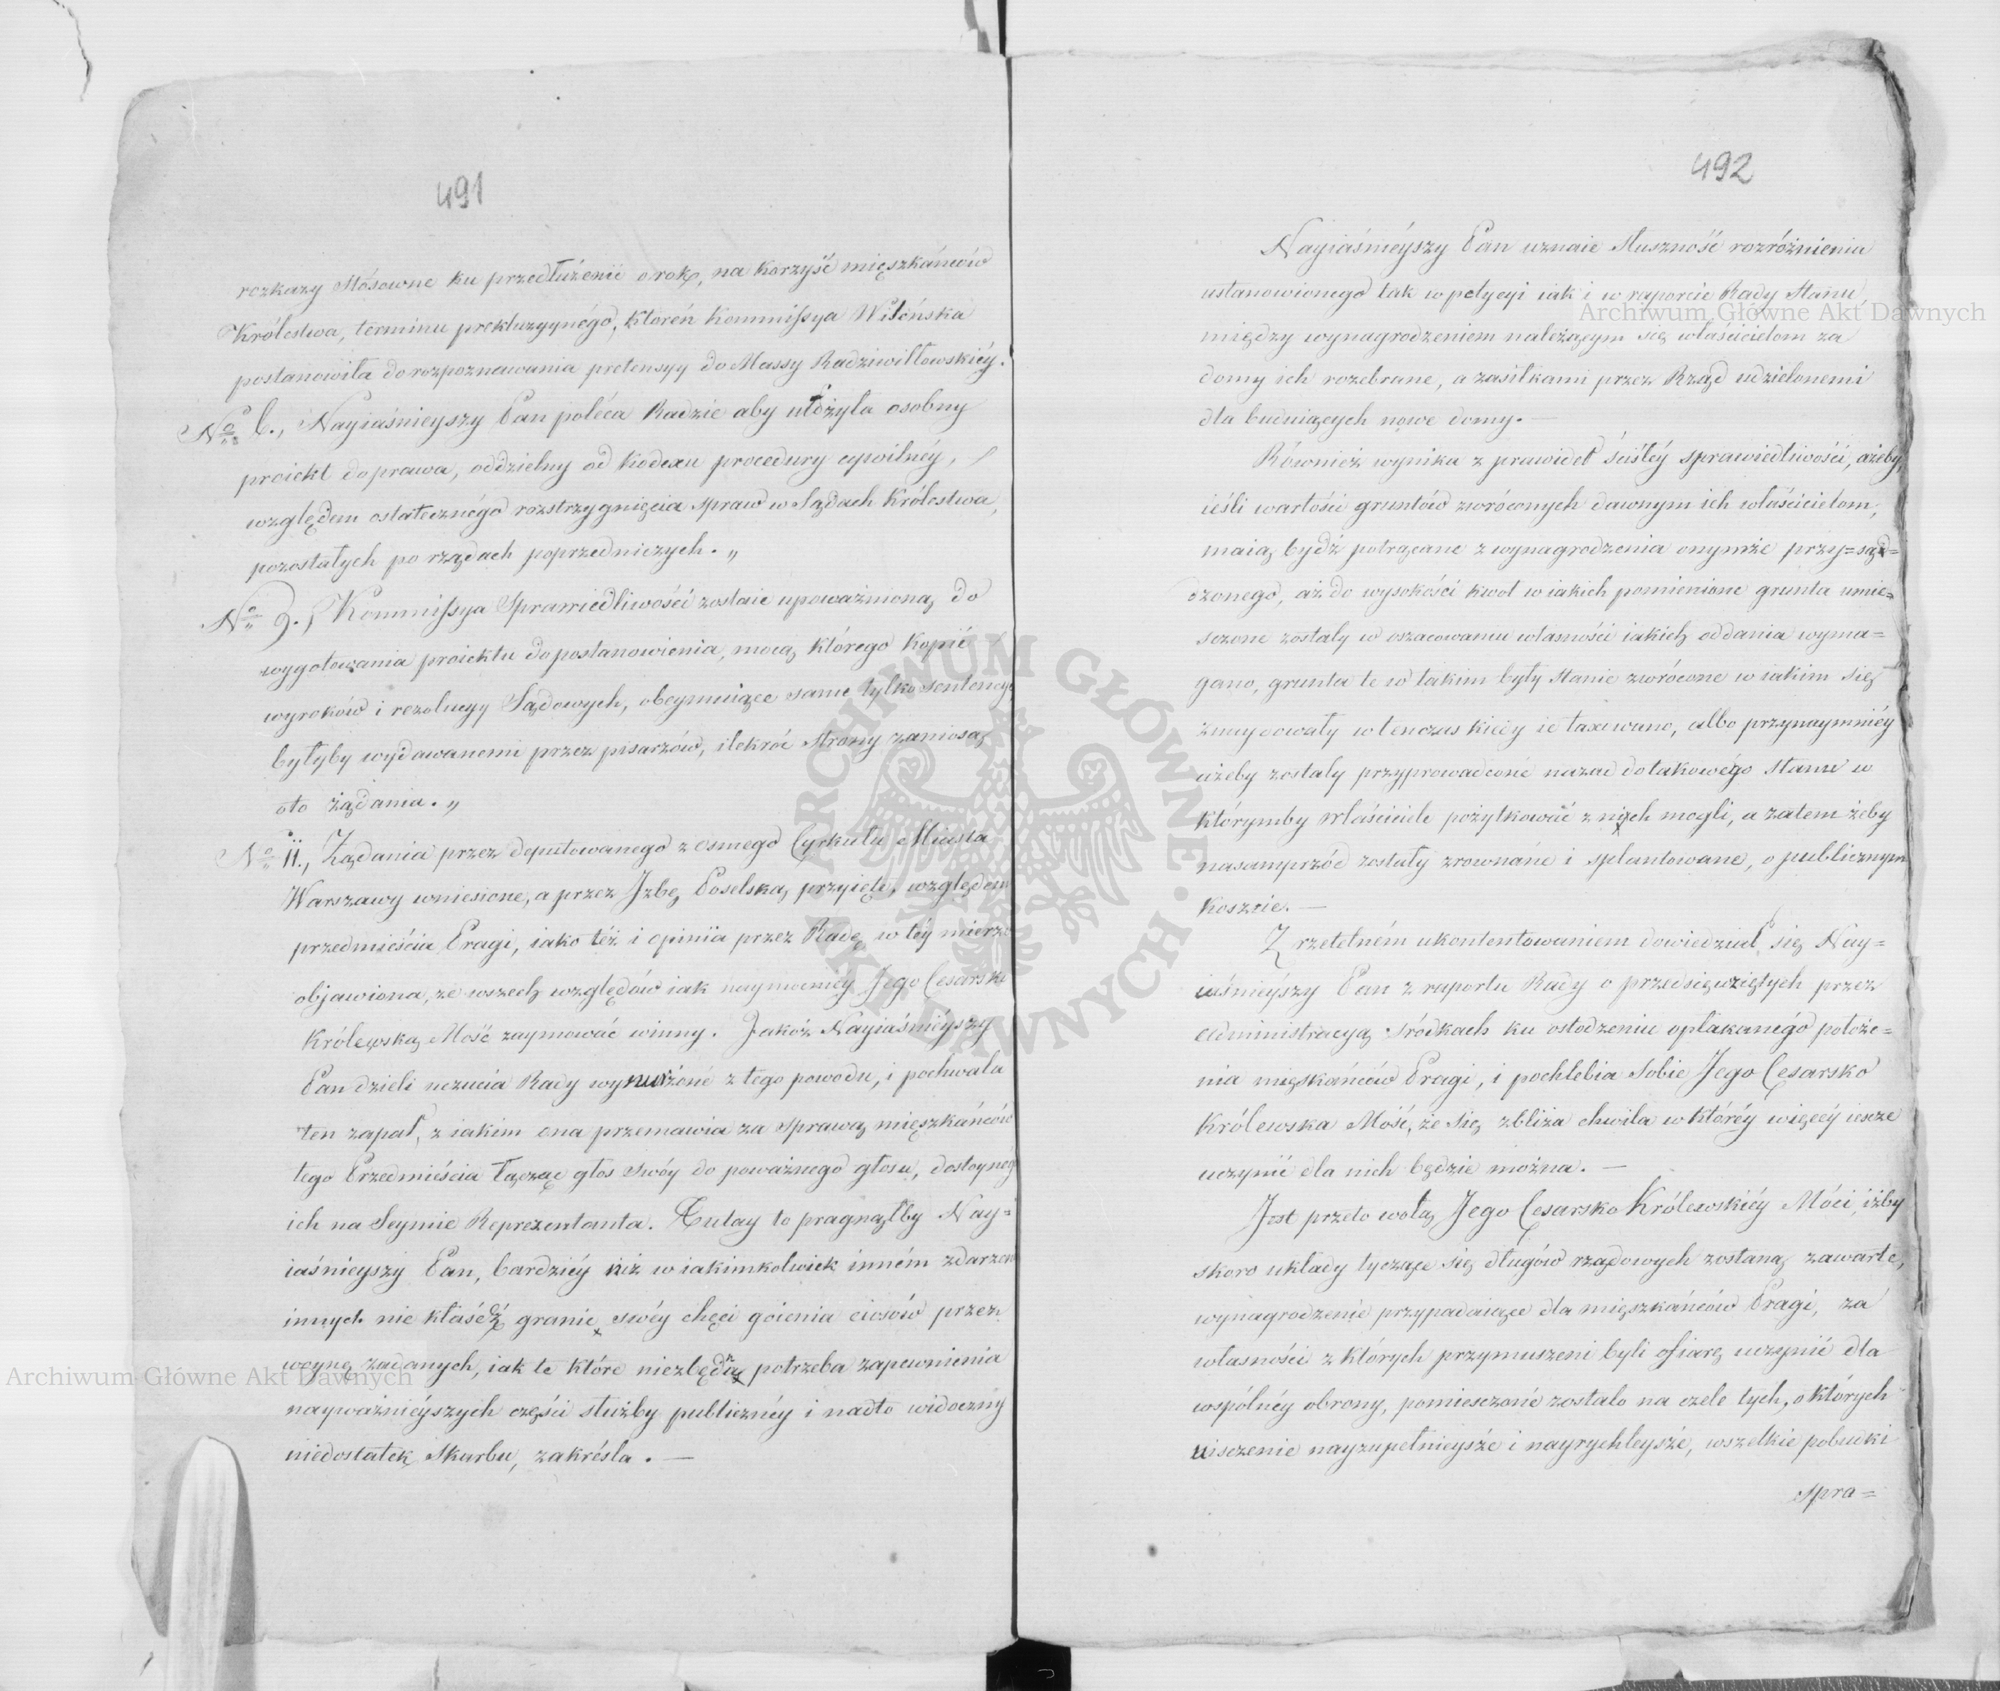 491
rozkazy stósowne ku przedłużeniu o rok, na korzyść mięszkańców
Królestwa, terminu prekluzyynégo, któreń Kommissya Wileńska
postanowiła do rozpoznawania pretensyy do Massy Radziwiłłowskiéy.
No Nayiaśnieyszy Pan poléca Radzie aby ułożyła osobny
proiekt do prawa, oddzielny od kodexu procedury cywilnéy,
względem ostatecznégo rozstrzygnięcia spraw w Sądach Królestwa,
pozostałych po rządach poprzedniczych. „
No 9. Kommissya Sprawiedliwości zostaie upoważnioną do
wygotowania proiektu do postanowienia, mocą którego kopiie
wyroków i rezolucyy Sądowych, obeymuiące same tylko sentencye
byłyby wydawanemi przez pisarzów, ilekroć strony zaniosą
oto żądania. „
No 11., Żądania przez deputowanego z osmego Cyrkułu Miasta
Warszawy wniesione, a przez Izbę Poselską przyięte, względem
przedmieścia Pragi, iako téż i opiniia przez Radę w téy mierze
objawiona, ze wszech względów iak naymocniéy Jego Cesarsko
Królewską Mość zaymować winny. Jakoż Nayiaśniéyszy
Pan dzieli uczucia Rady wynurżoné z tego powodu, i pochwala
ten zapał, z iakim ona przemawia za sprawą mięszkańców
tego Przedmieścia łącząc głos swóy do poważnego głosu, dostoynego
ich na Seymie Reprezentanta. Tutay to pragnąłby Nay=
iaśnieyszy Pan, bardziéy niż w iakimkolwiek inném zdarzeniu
innych nie kłaśdź granic swéy chęci goienia ciosów przez
woynę zadanych, iak te które niezbędna potrzeba zapewnienia
nayważnieyszych części służby publicznéy i nadto widoczny
niedostatek Skarbu, zakréśla. —
492
Nayiaśniéyszy Pan uznaie słuszność rozróżnienia
ustanowionego tak w petycyi iak i w raporcie Rady Stanu
między wynagrodzeniem należącym się właścicielom za
domy ich rozebrane, a zasiłkami przez Rząd udzielonemi
dla buduiących nowe domy. —
Równiéż wynika z prawideł ściśléy sprawiedliwości, ażeby,
ieśli wartości gruntów zwróconych dawnym ich właścicielom,
maią bydź potrącane z wynagrodzenia onymże przy=sąd=
dzonego, aż do wysokości kwot w iakich pomienione grunta umie=
sczone zostały w oszacowaniu własności iakich oddania wyma=
gano, grunta te w takim były stanie zwrócone w iakim się
znaydowały w tenczas kiedy ie taxowano, albo przynaymniéy
ażeby zostały przyprowadzoné nazad do takowégo stanu w
którymby właściciele pożytkować z nich mogli, a zatem żeby
nasamprzód zostały zrownane i splantowane, o publicznym
koszcie. —
Z rzetelném ukontentowaniem dowiedział się Nay=
iaśniéyszy Pan z raportu Rady o przedsięwziętych przez
administracyą śródkach ku osłodzeniu opłakanégo położe=
nia mięskańców Pragi, i pochlebia sobie Jego Cesarsko
Królewska Mość, że się zbliża chwila w któréy więcéy iescze
uczynić dla nich będzie można. —
Jest przeto wolą Jego Cesarsko Królewskiéy Mości, iżby
skoro układy tyczące się długów rządowych zostaną zawarte,
wynagrodzenie przypadaiące dla mięszkańców Pragi, za
własności z których przymuszeni byli ofiarę uczynić dla
wspólnéy obrony, pomiesczoné zostało na czele tych, o których
uisczenie nayzupełnieysze i nayrychleysze, wszelkie pobudki
spra=
Archiwum Główne Akt Dawnych
Archiwum Główne Akt Dawnych
ARCHIWUM GŁÓWNE AKT DAWNYCH